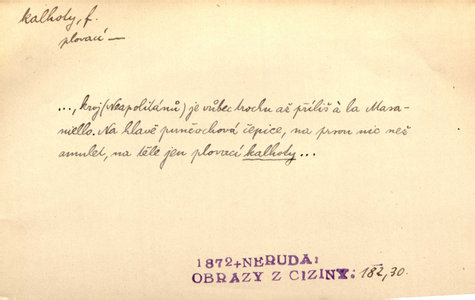 kalhoty, f.
plovací —
..., kroj (Neapolitánů) je vůbec trochu až příliš à la Masa-
niello. Na hlavě punčochová čepice, na prsou nic než
amulet, na těle jen plovací kalhoty...
1872+NERUDA:
OBRAZY Z CIZINY: 182,30.